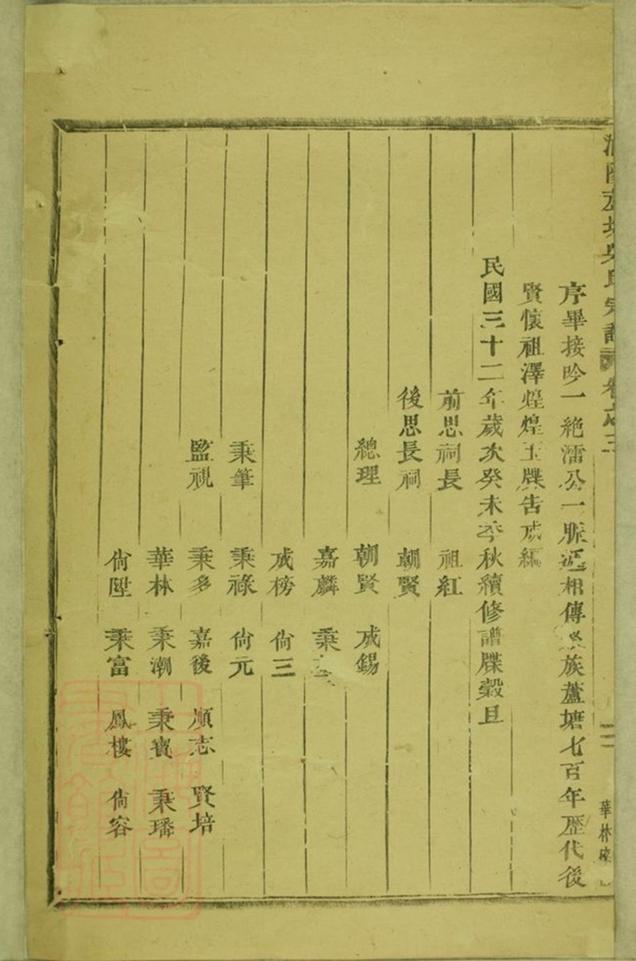 吳氏宗譜 卷之三 華林
序畢接吟一絕濡公一脈遞相傳族蘆塘七百年歷代後
賢懷祖澤煌煌玉牒告成編
民國三十二年歲次癸未季秋續修譜牒穀旦
前思祠長 祖紅
後思長祠 朝賢
總理 朝賢 成錫
嘉麟 秉
成榜 尙三
秉筆 秉祿 尙元
監視 秉多 嘉後 順志 賢培
華林 秉潮 秉寶 秉璠
尙陞 秉富 鳳樓 尙容